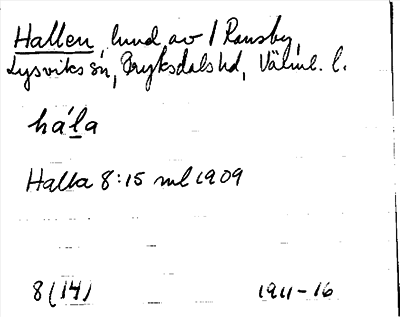 Hallen, hmd av / Ransby,
Lysviks sn, Fryksdals hd, Värml. l.
hála
Halla 8:15 ml 1909
8 (14) 1911-16